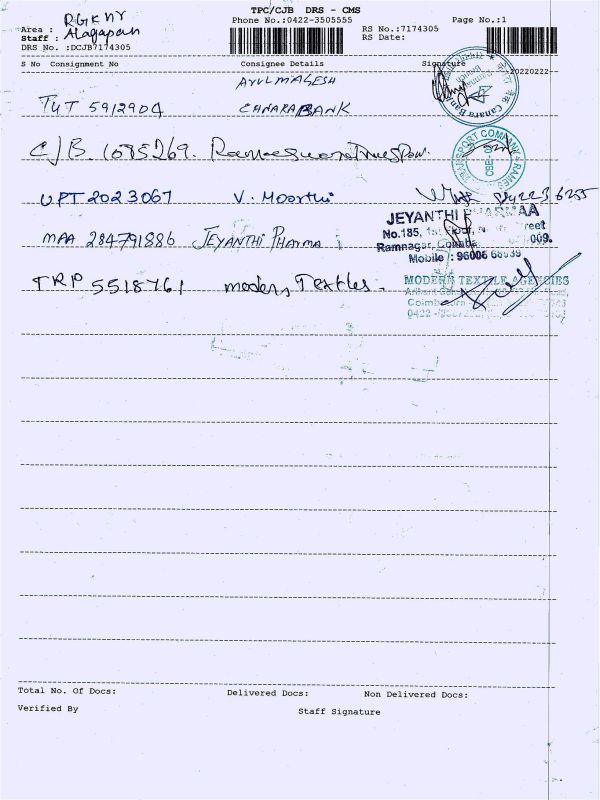 TPC/CJB DRS - CMS
Phone No.:0422-3505555
Page No.:1
Area : RGKNR
Staff : Alagapan
DRS No. :DCJB7174305
RS No.:7174305
RS Date:
S No Consignment No Consignee Details Signature
20220222
TUT 5912904 CANARA BANK
Canara Bank
CJB 1085269.
TRANSPORT COMPANY
UPT 2023067 V. Moorthi
MAA 284791886 JEYANTHI PHARMA
JEYANTHI PHARMAA
No.185, 1st Floor,
Ramnagar,
009.
Mobile : 96006
TRP 5518761 modern Textiles.
MODERN TEXTILE AGENCIES
0422
Total No. Of Docs: Delivered Docs: Non Delivered Docs:
Verified By Staff Signature